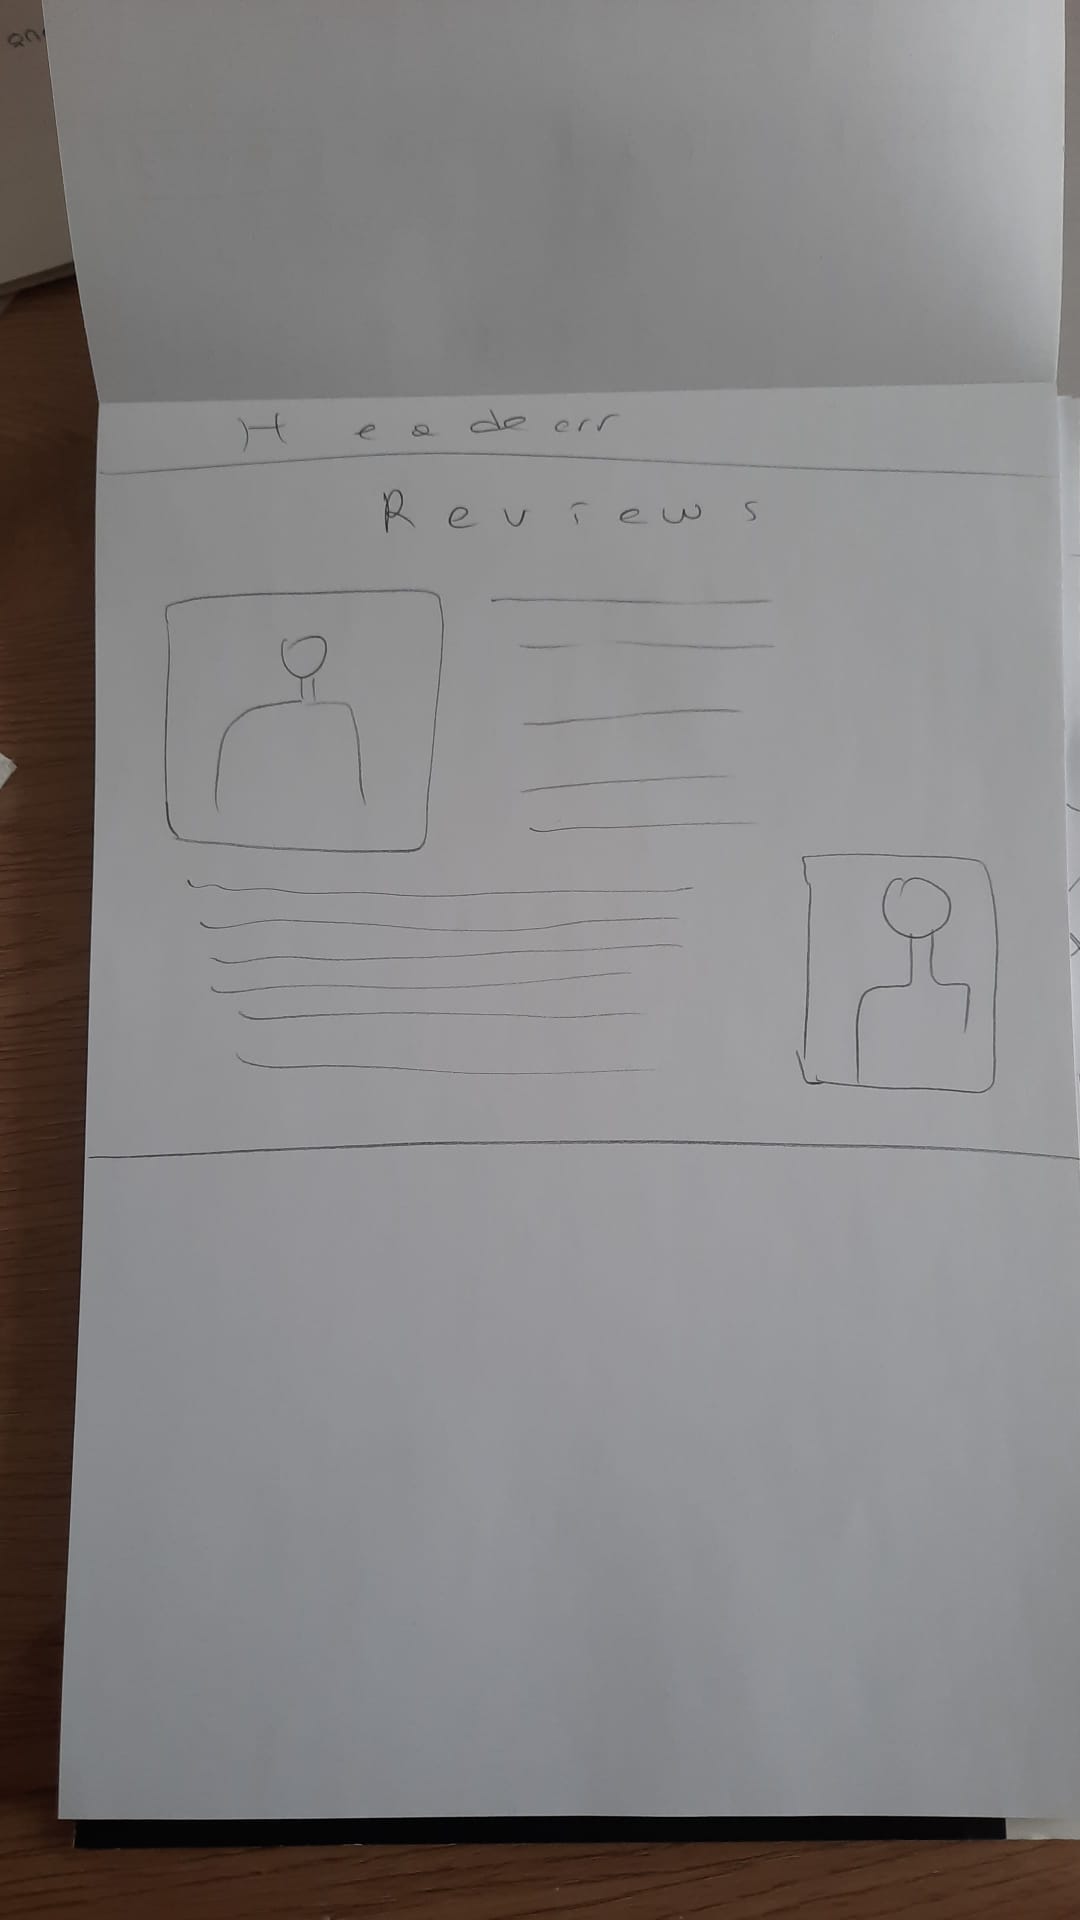 Headerr
Reviews